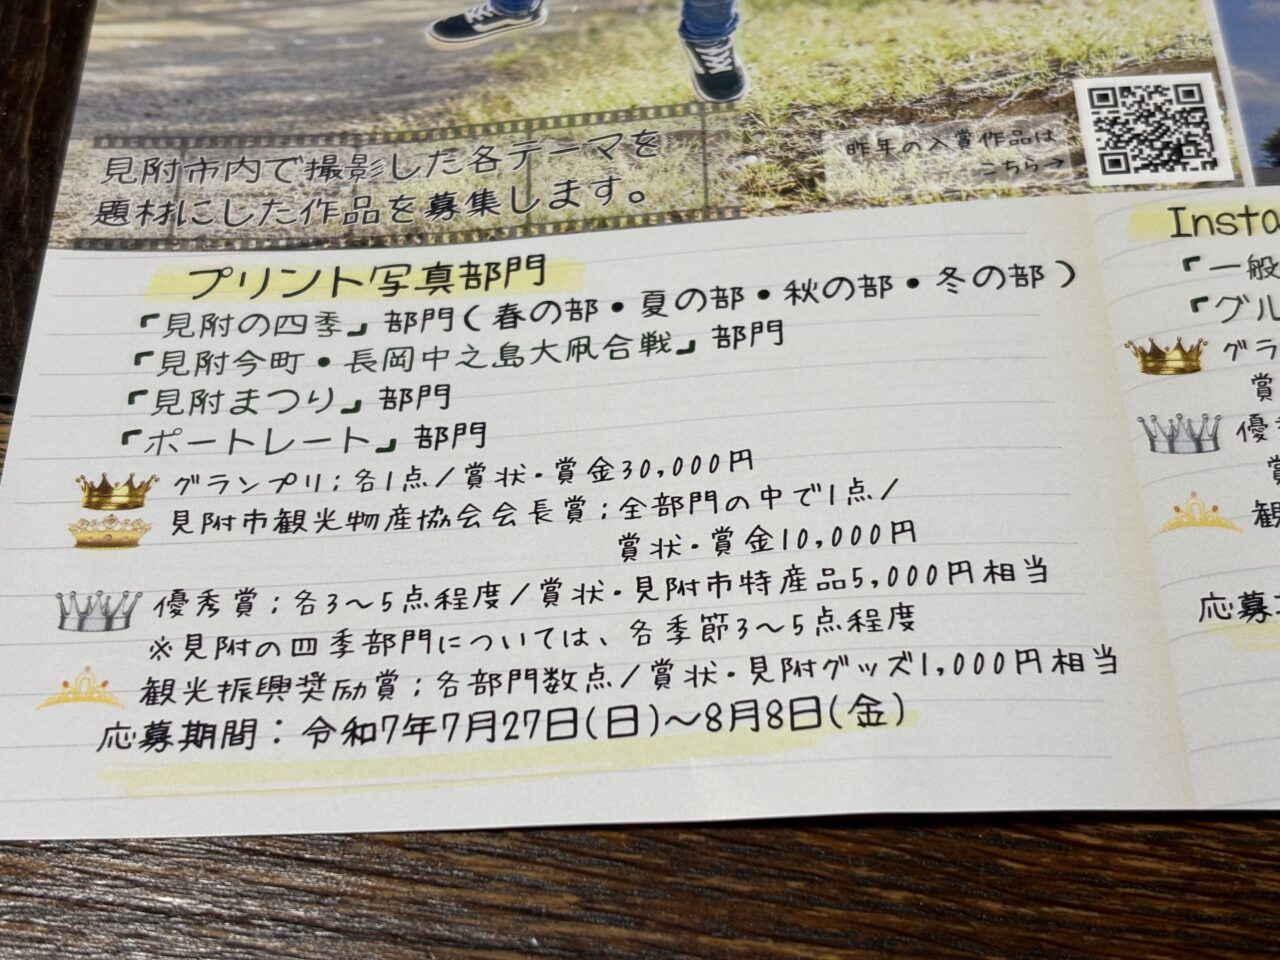 見附市内で撮影した各テーマを
題材にした作品を募集します。
昨年の入賞作品は
こちら→
プリント写真部門
「見附の四季」部門(春の部・夏の部・秋の部・冬の部)
「見附今町・長岡中之島大凧合戦」部門
「見附まつり」部門
「ポートレート」部門
グランプリ;各1点/賞状・賞金30,000円
見附市観光物産協会会長賞;全部門の中で1点/
賞状・賞金10,000円
優秀賞;各3~5点程度/賞状・見附市特産品5,000円相当
※見附の四季部門については、各季節3~5点程度
観光振興奨励賞;各部門数点/賞状・見附グッズ1,000円相当
応募期間:令和7年7月27日(日)~8月8日(金)
Insta
「一般
「グル
グラ
賞
優
賞
観
応募